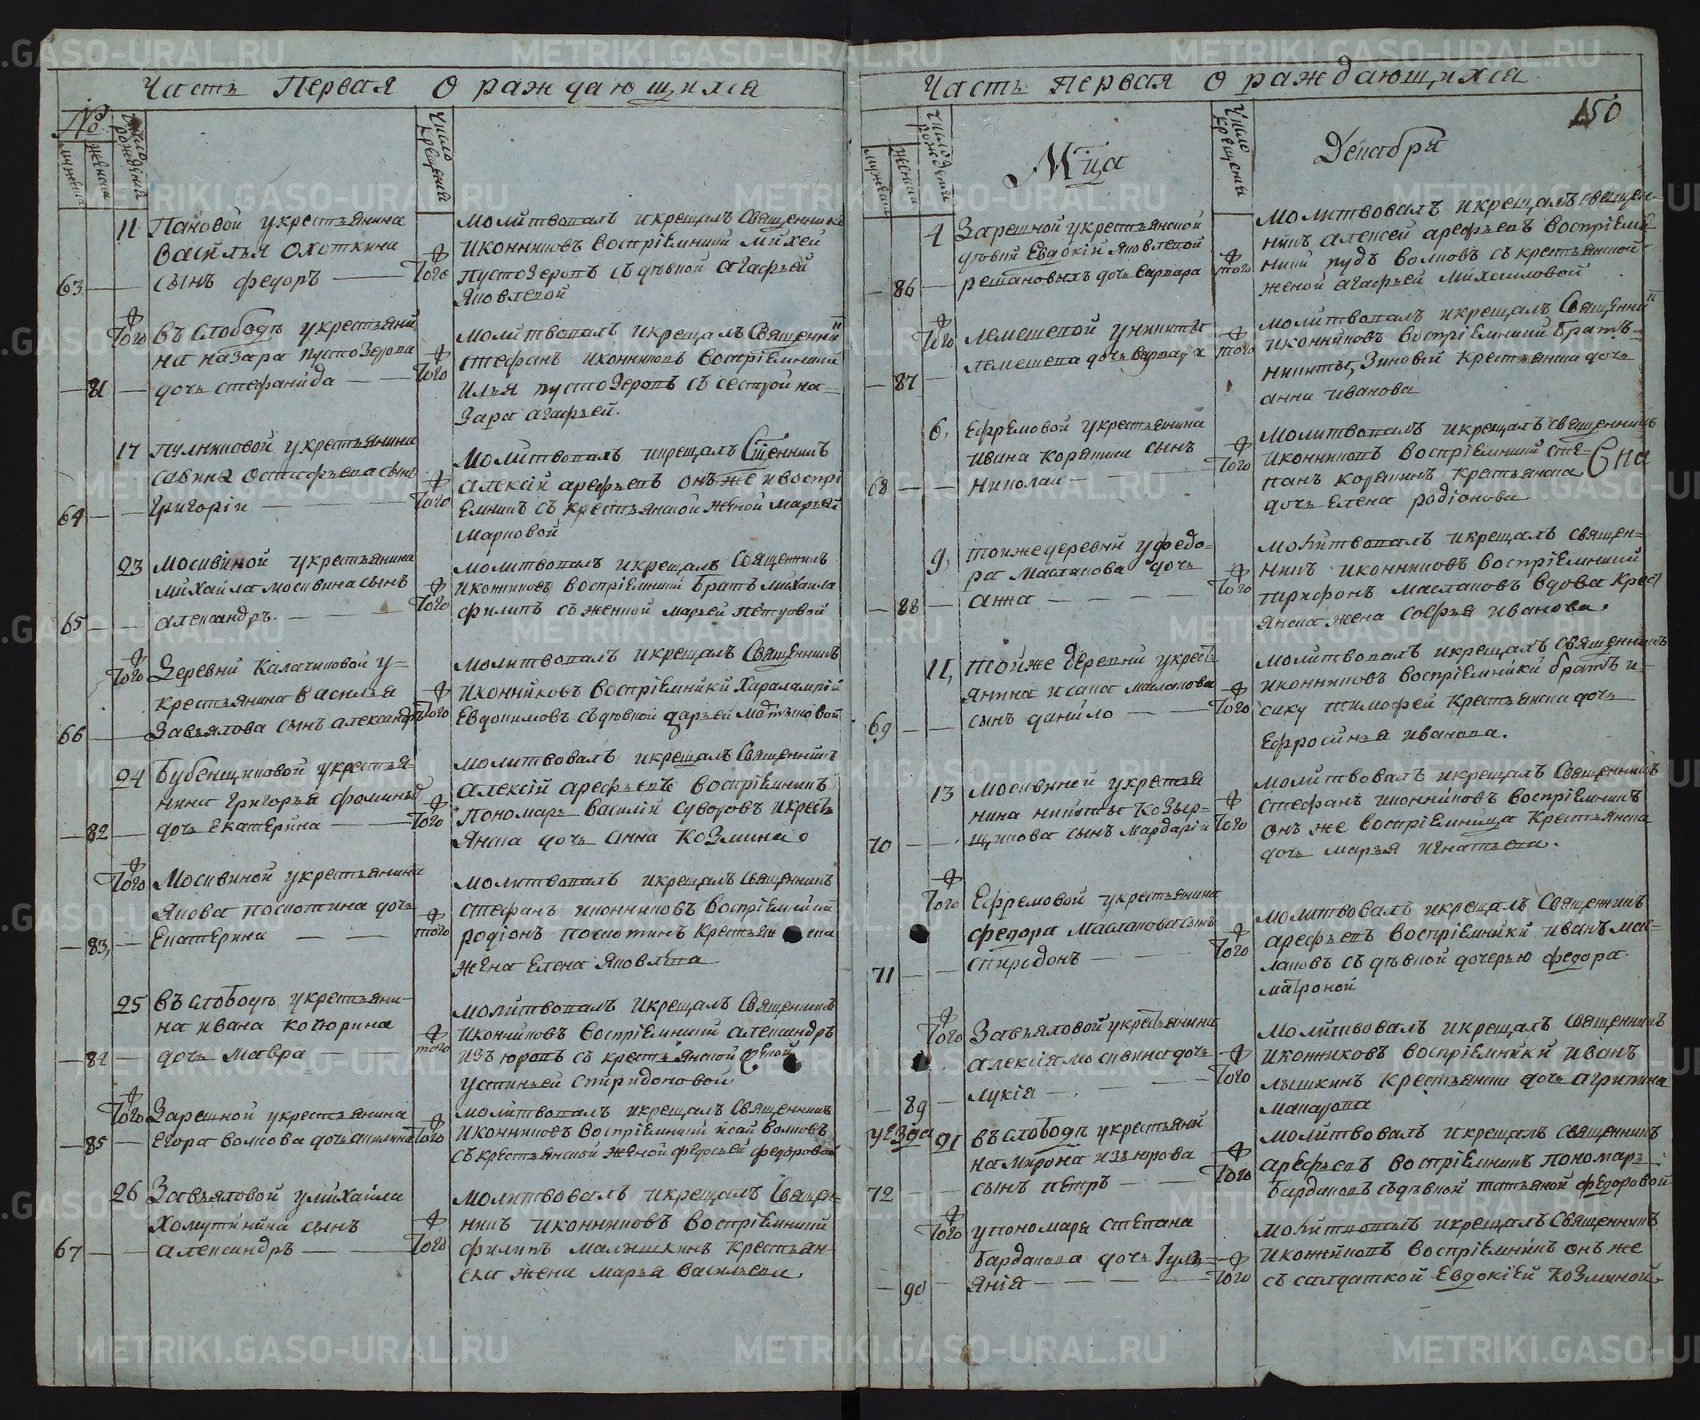 Часть Первая О раждающихся
№
мужеска
женска
число рождения
число крещения
11 Пановой укрестьянина
Василья Охоткина
63 сынъ федоръ Того
молитвовалъ икрещалъ Священникъ
Иконниковъ восприемники Михей
пустозеровъ съ девкой агафьей
Яковлевой
Того въ слободе укрестьяни
на назара пустозерова
81 дочь стефанида Того
молитвовалъ икрещалъ Священни
стефанъ иконниковъ восприемники
Илья пустозеровъ съ сестрой на=
зара агафьей.
17 пульниковой укрестьянина
савина остафьева сынъ
64 Григорій Того
молитвовалъ икрещалъ Сщенникъ
алексій арефьевъ онъ же ивоспри
емникъ съ крестьянской женой марьей
марковой
23 москвиной укрестьянина
михайла москвина сынъ
65 александръ. Того
молитвовалъ икрещалъ Священникъ
иконниковъ восприемники братъ михаила
филипъ съ женкой марьей петровой
Того Деревни Калачиковой у=
крестьянина василья
66 Завьялова сынъ александръ Того
молитвовалъ икрещалъ Священникъ
Иконниковъ восприемники Харалампій
Евдокимовъ съ девкой дарьей
24 Бубенщиковой укрестья=
нина григорья фоминыхъ
82 дочь екатерина Того
молитвовалъ икрещалъ Священникъ
алексій арефьевъ восприемникъ
пономарь василій суворовъ икресть
янска дочь анна козмина
Того Москвиной укрестьянина
Якова поскотина дочь
83, Екатерина того
молитвовалъ икрещалъ священникъ
стефанъ иконниковъ восприемники
родіонъ поскотинъ крестьян ска
жена елена Яковлева
25 въ слободе укрестьяни=
на ивана кокорина
84 дочь мавра того
молитвовалъ икрещалъ Священникъ
Иконниковъ восприемники александръ
изъюровъ съ крестьянской женой
устиньей спиридоновой
Того Зарешной укрестьянина
85 егора волкова дочь акилина Того
молитвовалъ икрещалъ Священникъ
Иконниковъ восприемники исай волковъ
съ крестьянской женой федосьей федоровой
26 Завьяловой умихайла
Хомутинина сынъ
67 александръ Того
молитвовалъ икрещалъ Священ=
никъ иконниковъ восприемники
филипъ малышкинъ крестьян=
ска жена марья васильева
Часть первая О раждающихся
150
мужеска
женска
число рождения
число крещения
Мца
Декабря
4 Зарешной укрестьянской
вдовы Евдокіи Яковлевой
86 решановыхъ дочь варвара того
молитвовалъ икрещалъ священ=
никъ алексей арефьевъ восприем
ники иудъ волковъ съ крестьянской
женой агафьей михайловой
Того лемешевой уникиты
87 лемешева дочь варвара того
молитвовалъ икрещалъ Священни
иконниковъ восприемники братъ
никиты, Зиновій крестьянска дочь
анна иванова
6, ефремовой укрестьянина
ивана корякина сынъ
68 николай Того
молитвовалъ икрещалъ священникъ
иконниковъ восприемники сте=
панъ корякинъ крестьянска
дочь елена родіонова
9, тойже деревни уфедо=
ра масликова дочь
88 анна Того
молитвовалъ икрещалъ священ=
никъ иконниковъ восприемники
трифонъ маслаковъ вдова крест
янска жена софья иванова.
11, тойже деревни укресть
янина исака маслакова
69 сынъ данило Того
молитвовалъ икрещалъ священникъ
иконниковъ восприемники братъ и=
саку тимофей крестьянска дочь
Ефросинья иванова.
13 москвиной укрестья
нина никиты козыр=
70 щикова сынъ мардарій Того
молитвовалъ икрещалъ Священникъ
стефанъ иконниковъ восприемникъ
онъ же восприемница крестьянска
дочь марья игнатьева.
Того Ефремовой укрестьянина
федора маслакова сынъ
71 спиридонъ Того
молитвовалъ икрещалъ Священникъ
арефьевъ восприемники иванъ мас=
лаковъ съ девкой дочерью федора
матроной
Того Завьяловой укрестьянина
алексія москвина дочь
89 лукія Того
молитвовалъ икрещалъ священникъ
иконниковъ восприемники иванъ
лышкинъ крестьянска дочь агрипина
макарова
21 въ слободе укрестьяни
на мирона изъюрова
72 сынъ петръ Того
молитвовалъ икрещалъ священникъ
арефьевъ восприемникъ пономарь
бардаковъ съ девкой татьяной федоровой
Того упономаря степана
бардакова дочь Іулі=
90 анія Того
молитвовалъ икрещалъ Священникъ
иконниковъ восприемникъ онъ же
съ салдаткой Евдокіей козминой.
METRIKI.GASO-URAL.RU